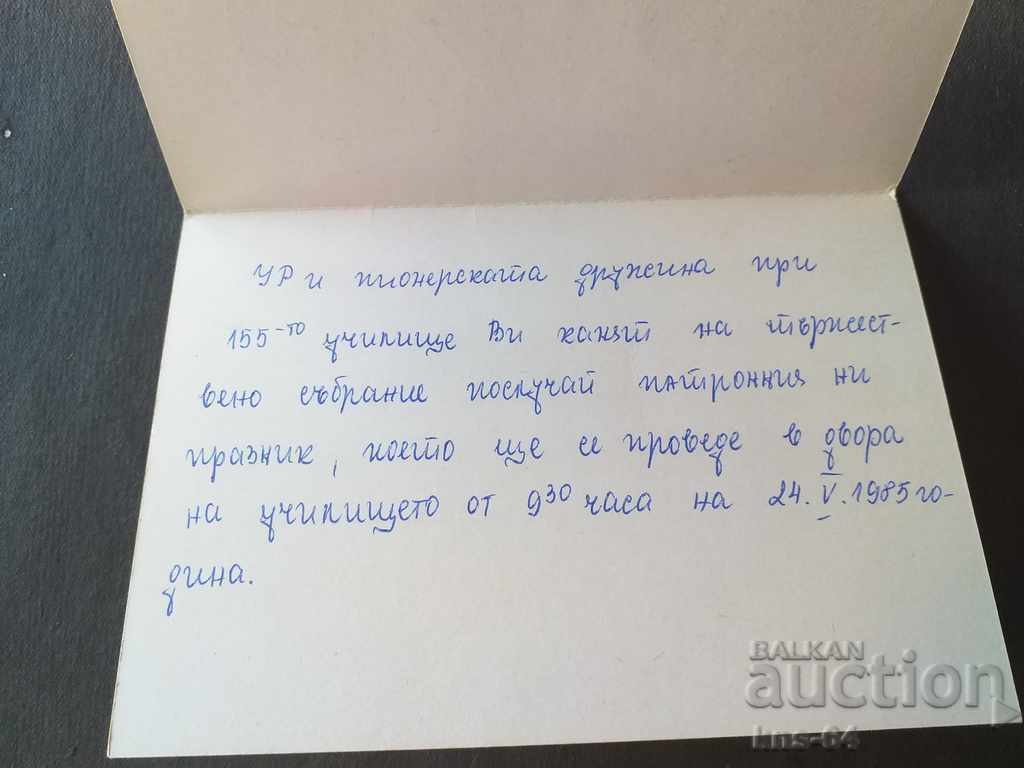 УР и пионерската дружина при
155-то училище Ви канят на тържест-
вено събрание послучай патронния ни
празник, което ще се проведе в двора
на училището от 9 30 часа на 24.V.1985 го-
дина.
BALKAN
auction
kns-64